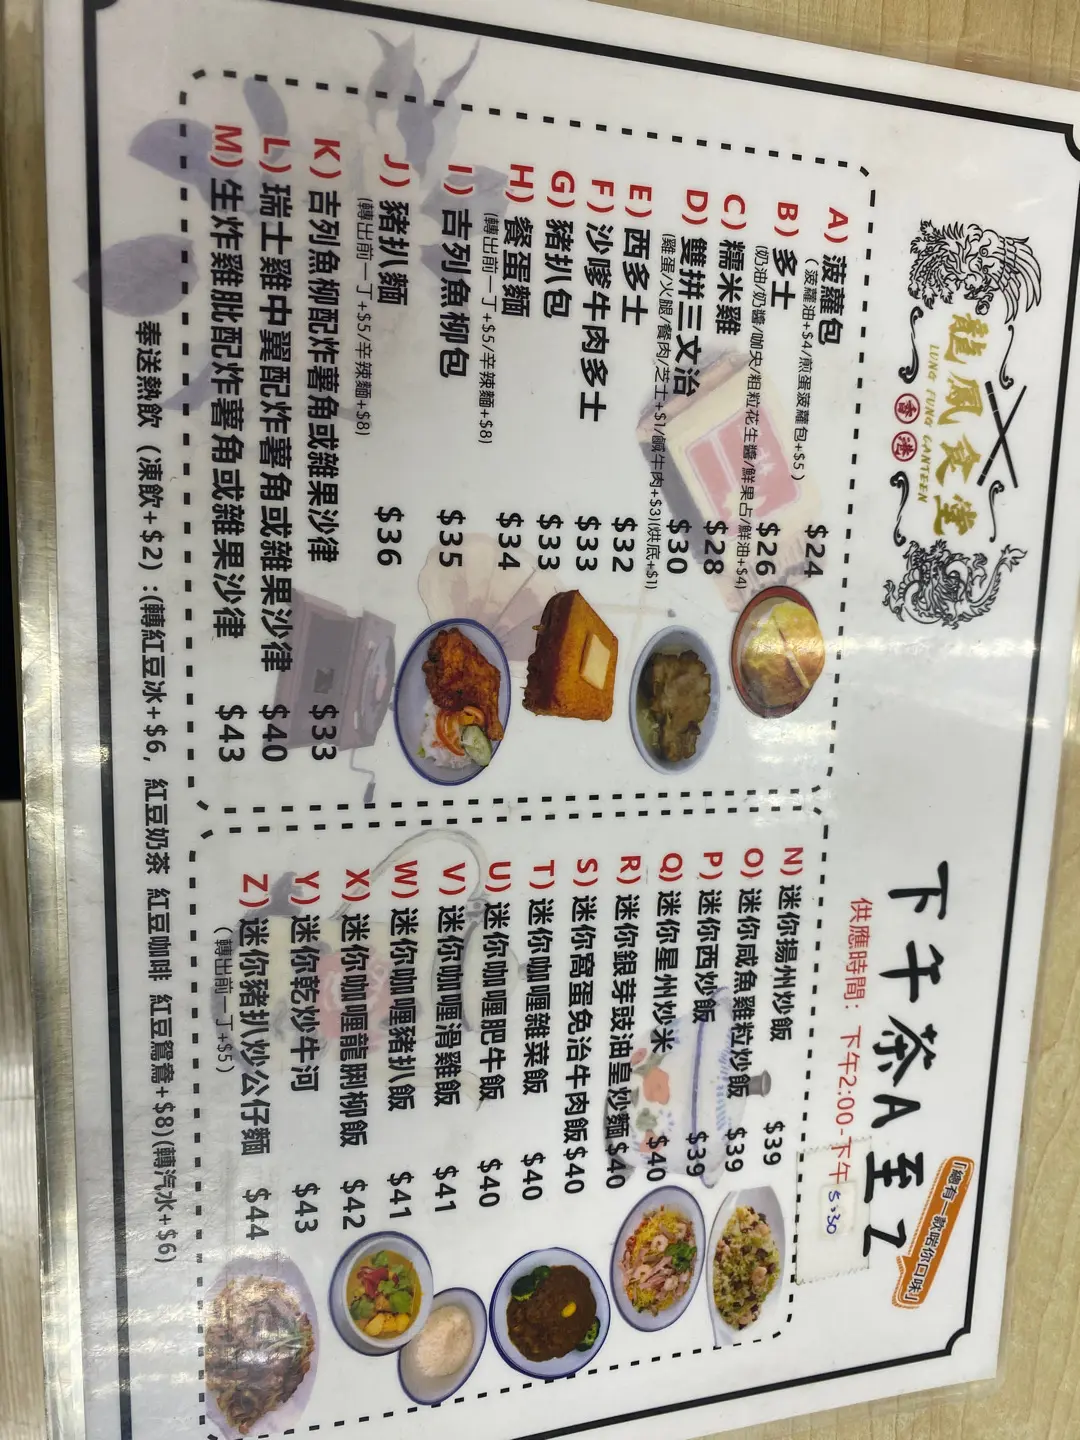 龍鳳食堂
LUNG FUNG CANTEEN
香港
下午茶A至Z
「總有一款啱你口味」
供應時間：下午2:00-下午5:30
A) 菠蘿包 $24
(菠蘿油+$4/煎蛋菠蘿包+$5)
B) 多士 $26
(奶油/奶醬/咖央/粗粒花生醬/鮮果占/鮮油+$4)
C) 糯米雞 $28
D) 雙拼三文治 $30
(雞蛋/火腿/餐肉/芝士+$1/鹹牛肉+$3)(烘底+$1)
E) 西多士 $32
F) 沙嗲牛肉多士 $33
G) 豬扒包 $33
H) 餐蛋麵 $34
(轉出前一丁+$5/辛辣麵+$8)
I) 吉列魚柳包 $35
J) 豬扒麵 $36
(轉出前一丁+$5/辛辣麵+$8)
K) 吉列魚柳配炸薯角或雜果沙律 $33
L) 瑞士雞中翼配炸薯角或雜果沙律 $40
M) 生炸雞肶配炸薯角或雜果沙律 $43
N) 迷你揚州炒飯 $39
O) 迷你咸魚雞粒炒飯 $39
P) 迷你西炒飯 $39
Q) 迷你星州炒米 $40
R) 迷你銀芽豉油皇炒麵 $40
S) 迷你窩蛋免治牛肉飯 $40
T) 迷你咖喱雜菜飯 $40
U) 迷你咖喱肥牛飯 $40
V) 迷你咖喱滑雞飯 $41
W) 迷你咖喱豬扒飯 $41
X) 迷你咖喱龍脷柳飯 $42
Y) 迷你乾炒牛河 $43
Z) 迷你豬扒炒公仔麵 $44
(轉出前一丁+$5)
奉送熱飲 (凍飲+$2) :(轉紅豆冰+$6, 紅豆奶茶 紅豆咖啡 紅豆鴛鴦+$8)(轉汽水+$6)